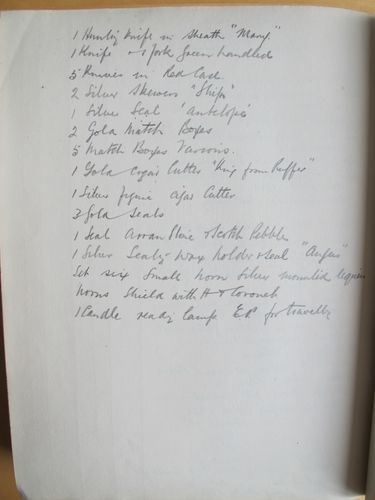 1 Hunting Knife in sheath "Mary"
1 Knife & Fork Green handled
5 Knives in Red Case
2 Silver Skewers "Ships"
1 Silver Seal 'Antelope'
2 Gold Match Boxes
5 Match Boxes Various.
1 Gold Cigar Cutter "King from Puffer"
1 Silver figure cigar Cutter
3 Gold Seals
1 Seal Arran Stone & Scotch Pebble
1 Silver Sealing-Wax holder & Seal "Angus"
Set six Small horn Silver mounted liqueur
horns Shield with H & Coronet
1 Candle reading Lamp for travelling